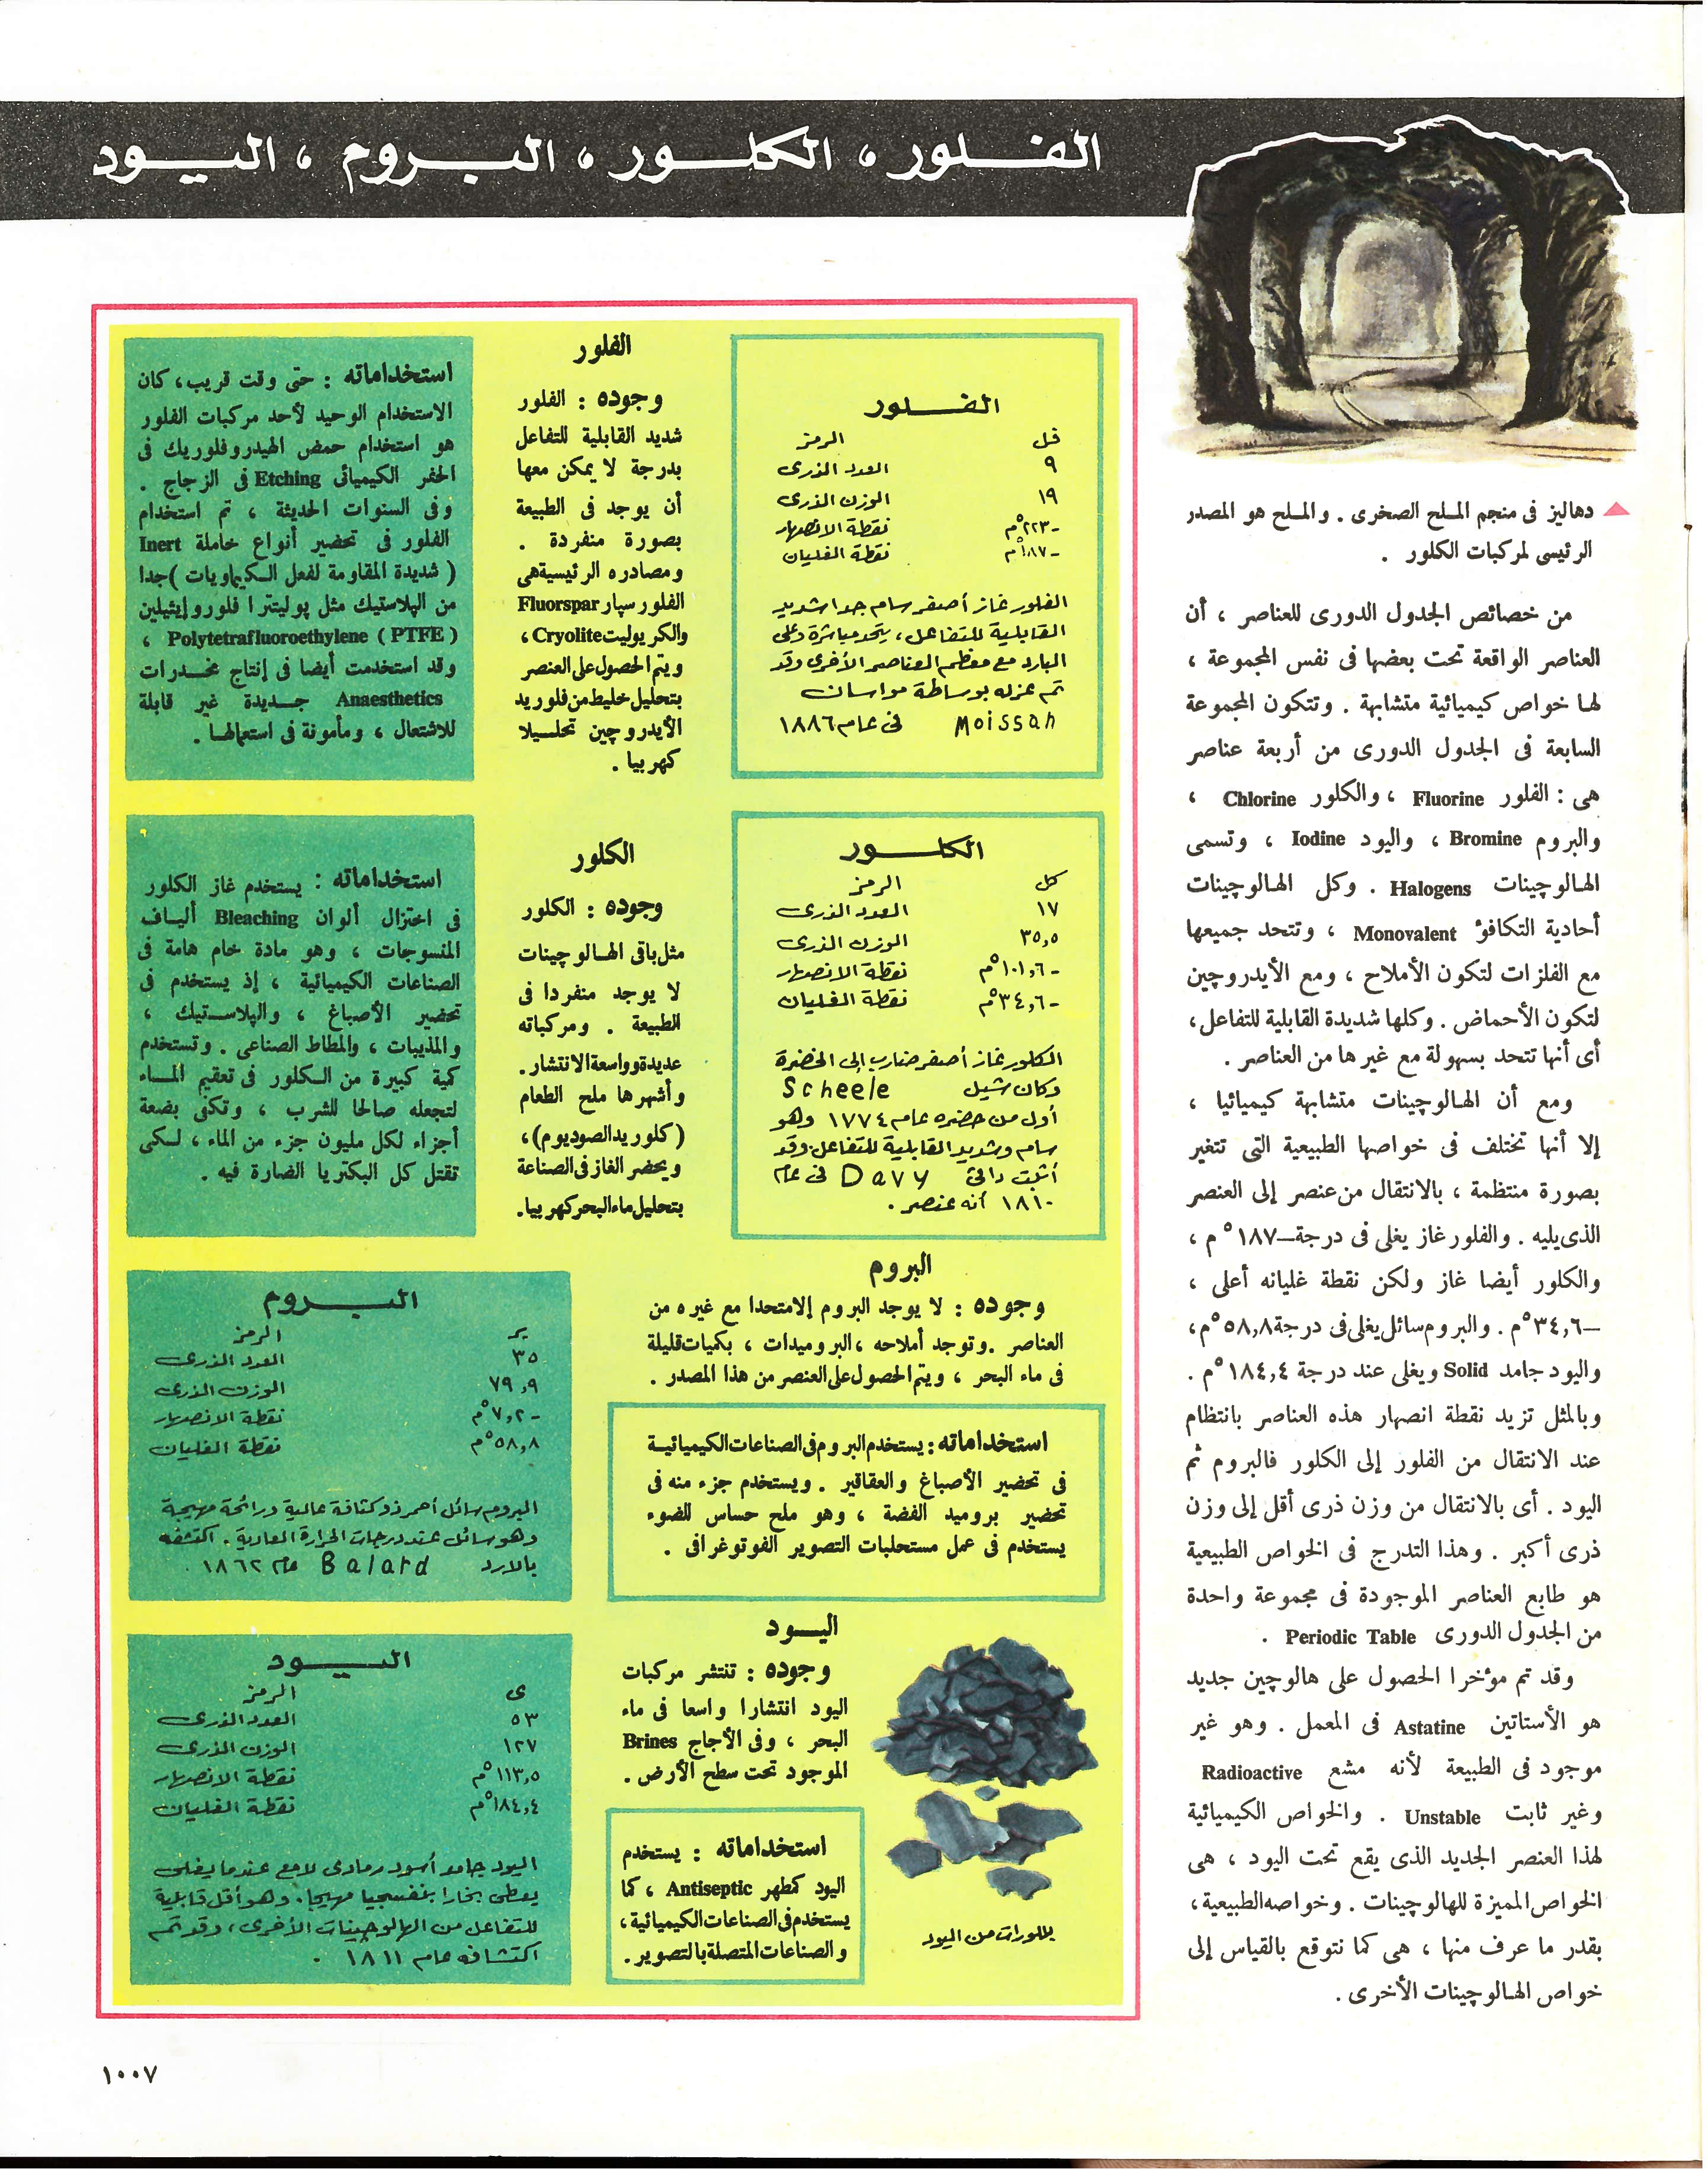 الفلور ، الكلور ، البروم ، اليود
دهاليز فى منجم الملح الصخرى . والملح هو المصدر
الرئيسى لمركبات الكلور .
من خصائص الجدول الدورى للعناصر ، أن
العناصر الواقعة تحت بعضها فى نفس المجموعة ،
لها خواص كيميائية متشابهة . وتتكون المجموعة
السابعة فى الجدول الدورى من أربعة عناصر
هى : الفلور Fluorine ، والكلور Chlorine ،
والبروم Bromine ، واليود Iodine ، وتسمى
الهالوچينات Halogens . وكل الهالوچينات
أحادية التكافؤ Monovalent ، وتتحد جميعها
مع الفلزات لتكون الأملاح ، ومع الأيدروچين
لتكون الأحماض . وكلها شديدة القابلية للتفاعل ،
أى أنها تتحد بسهولة مع غيرها من العناصر .
ومع أن الهالوچينات متشابهة كيميائيا ،
إلا أنها تختلف فى خواصها الطبيعية التى تتغير
بصورة منتظمة ، بالانتقال من عنصر إلى العنصر
الذى يليه . والفلور غاز يغلى فى درجة –١٨٧°م ،
والكلور أيضا غاز ولكن نقطة غليانه أعلى ،
–٣٤,٦°م . والبروم سائل يغلى فى درجة ٥٨,٨°م ،
واليود جامد Solid ويغلى عند درجة ١٨٤,٤°م .
وبالمثل تزيد نقطة انصهار هذه العناصر بانتظام
عند الانتقال من الفلور إلى الكلور فالبروم ثم
اليود . أى بالانتقال من وزن ذرى أقل إلى وزن
ذرى أكبر . وهذا التدرج فى الخواص الطبيعية
هو طابع العناصر الموجودة فى مجموعة واحدة
من الجدول الدورى Periodic Table .
وقد تم مؤخرا الحصول على هالوچين جديد
هو الأستاتين Astatine فى المعمل . وهو غير
موجود فى الطبيعة لأنه مشع Radioactive
وغير ثابت Unstable . والخواص الكيميائية
لهذا العنصر الجديد الذى يقع تحت اليود ، هى
الخواص المميزة للهالوچينات . وخواصه الطبيعية ،
بقدر ما عرف منها ، هى كما نتوقع بالقياس إلى
خواص الهالوچينات الأخرى .
الفلور
الرمز فل
العدد الذرى ٩
الوزن الذرى ١٩
نقطة الانصهار -٢٢٣°م
نقطة الغليان -١٨٧°م
الفلور غاز أصفر سام جدا شديد
القابلية للتفاعل ، يتحد مباشرة وعلى
البارد مع معظم العناصر الأخرى وقد
تم عزله بوساطة مواسان
Moissan فى عام ١٨٨٦
الفلور
وجوده : الفلور
شديد القابلية للتفاعل
بدرجة لا يمكن معها
أن يوجد فى الطبيعة
بصورة منفردة .
ومصادره الرئيسية هى
الفلورسپار Fluorspar
والكريوليت Cryolite ،
ويتم الحصول على العنصر
بتحليل خليط من فلوريد
الأيدروچين تحليلا
كهربيا .
استخداماته : حتى وقت قريب ، كان
الاستخدام الوحيد لأحد مركبات الفلور
هو استخدام حمض الهيدروفلوريك فى
الحفر الكيميائى Etching فى الزجاج .
وفى السنوات الحديثة ، تم استخدام
الفلور فى تحضير أنواع خاملة Inert
( شديدة المقاومة لفعل الكيماويات ) جدا
من الپلاستيك مثل پوليتترا فلورو إيثيلين
Polytetrafluoroethylene ( PTFE ) ،
وقد استخدمت أيضا فى إنتاج مخدرات
Anaesthetics جديدة غير قابلة
للاشتعال ، ومأمونة فى استعمالها .
الكلور
الرمز كل
العدد الذرى ١٧
الوزن الذرى ٣٥,٥
نقطة الانصهار -١٠١,٦°م
نقطة الغليان -٣٤,٦°م
الكلور غاز أصفر ضارب إلى الخضرة
وكان شيل Scheele
أول من حضره عام ١٧٧٤ وهو
سام وشديد القابلية للتفاعل وقد
أثبت داڤى Davy فى عام
١٨١٠ أنه عنصر .
الكلور
وجوده : الكلور
مثل باقى الهالوچينات
لا يوجد منفردا فى
الطبيعة . ومركباته
عديدة وواسعة الانتشار .
وأشهرها ملح الطعام
( كلوريد الصوديوم ) ،
ويحضر الغاز فى الصناعة
بتحليل ماء البحر كهربيا .
استخداماته : يستخدم غاز الكلور
فى اختزال ألوان Bleaching ألياف
المنسوجات ، وهو مادة خام هامة فى
الصناعات الكيميائية ، إذ يستخدم فى
تحضير الأصباغ ، والپلاستيك ،
والمذيبات ، والمطاط الصناعى . وتستخدم
كمية كبيرة من الكلور فى تعقيم الماء
لتجعله صالحا للشرب ، وتكفى بضعة
أجزاء لكل مليون جزء من الماء ، لكى
تقتل كل البكتريا الضارة فيه .
البروم
وجوده : لا يوجد البروم إلا متحدا مع غيره من
العناصر . وتوجد أملاحه ، البروميدات ، بكميات قليلة
فى ماء البحر ، ويتم الحصول على العنصر من هذا المصدر .
استخداماته : يستخدم البروم فى الصناعات الكيميائية
فى تحضير الأصباغ والعقاقير . ويستخدم جزء منه فى
تحضير بروميد الفضة ، وهو ملح حساس للضوء
يستخدم فى عمل مستحلبات التصوير الفوتوغرافى .
البروم
الرمز بر
العدد الذرى ٣٥
الوزن الذرى ٧٩,٩
نقطة الانصهار -٧,٢°م
نقطة الغليان ٥٨,٨°م
البروم سائل أحمر ذو كثافة عالية ورائحة مهيجة
وهو سائل عند درجات الحرارة العادية . اكتشفه
بالارد Balard عام ١٨٦٢ .
اليود
وجوده : تنتشر مركبات
اليود انتشارا واسعا فى ماء
البحر ، وفى الأجاج Brines
الموجود تحت سطح الأرض .
استخداماته : يستخدم
اليود كمطهر Antiseptic ، كما
يستخدم فى الصناعات الكيميائية ،
والصناعات المتصلة بالتصوير .
بللورات من اليود
اليود
الرمز ى
العدد الذرى ٥٣
الوزن الذرى ١٢٧
نقطة الانصهار ١١٣,٥°م
نقطة الغليان ١٨٤,٤°م
اليود جامد أسود رمادى لامع عندما يغلى
يعطى بخارا بنفسجيا مهيجا . وهو أقل قابلية
للتفاعل من الهالوچينات الأخرى ، وقد تم
اكتشافه عام ١٨١١ .
١٠٠٧